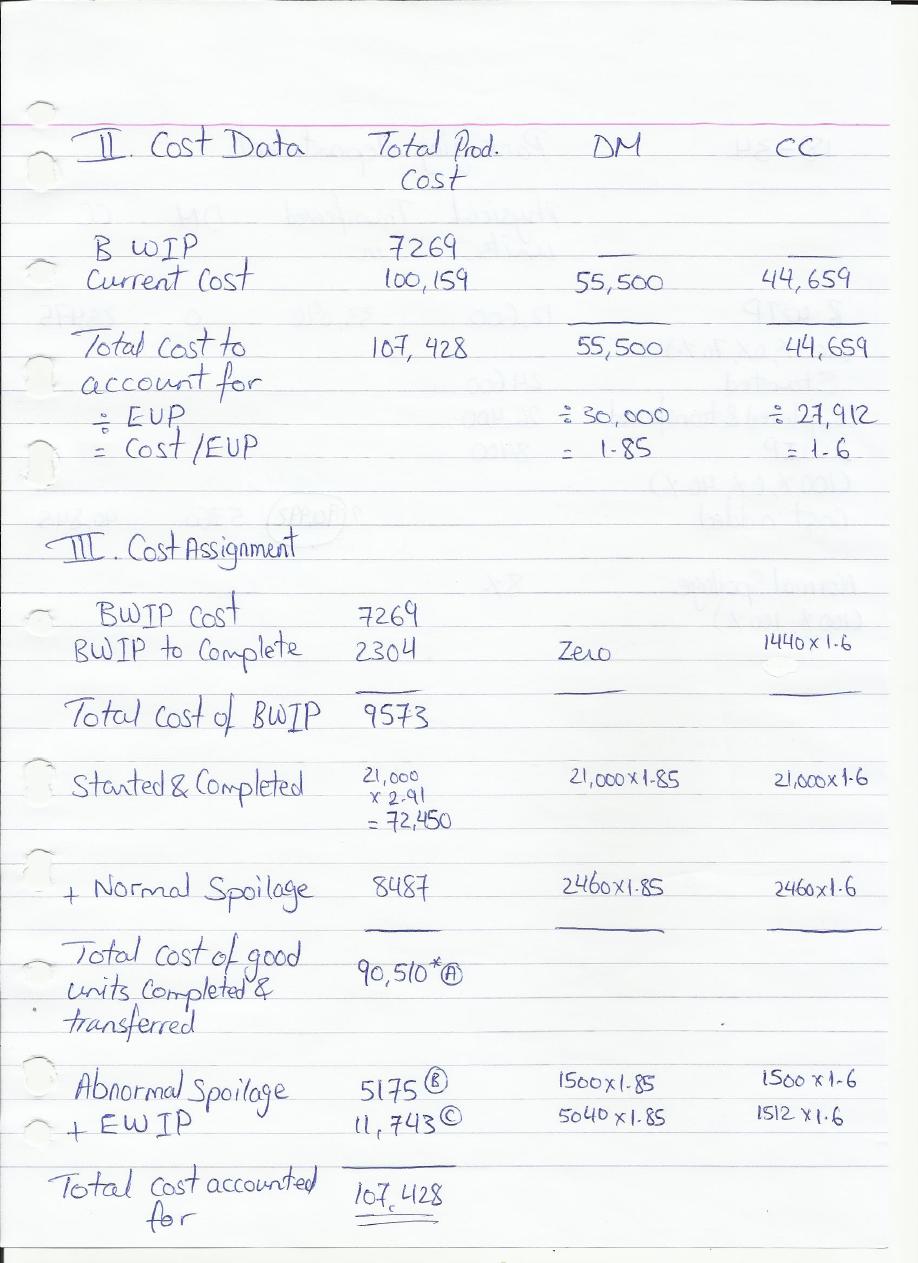 II. Cost Data Total Prod. DM CC
Cost
B WIP 7269 — —
Current Cost 100,159 55,500 44,659
Total Cost to 107,428 55,500 44,659
account for
÷ EUP ÷ 30,000 ÷ 27,912
= Cost/EUP = 1.85 = 1.6
III. Cost Assignment
BWIP Cost 7269
BWIP to Complete 2304 Zero 1440 x 1.6
Total Cost of BWIP 9573
Started & Completed 21,000 21,000 x 1.85 21,000 x 1.6
x 2.91
= 72,450
+ Normal Spoilage 8487 2460 x 1.85 2460 x 1.6
Total Cost of good
90,510* A
units Completed &
transferred
Abnormal Spoilage 5175 B 1500 x 1.85 1500 x 1.6
+ EWIP 11,743 C 5040 x 1.85 1512 x 1.6
Total Cost accounted 107,428
for